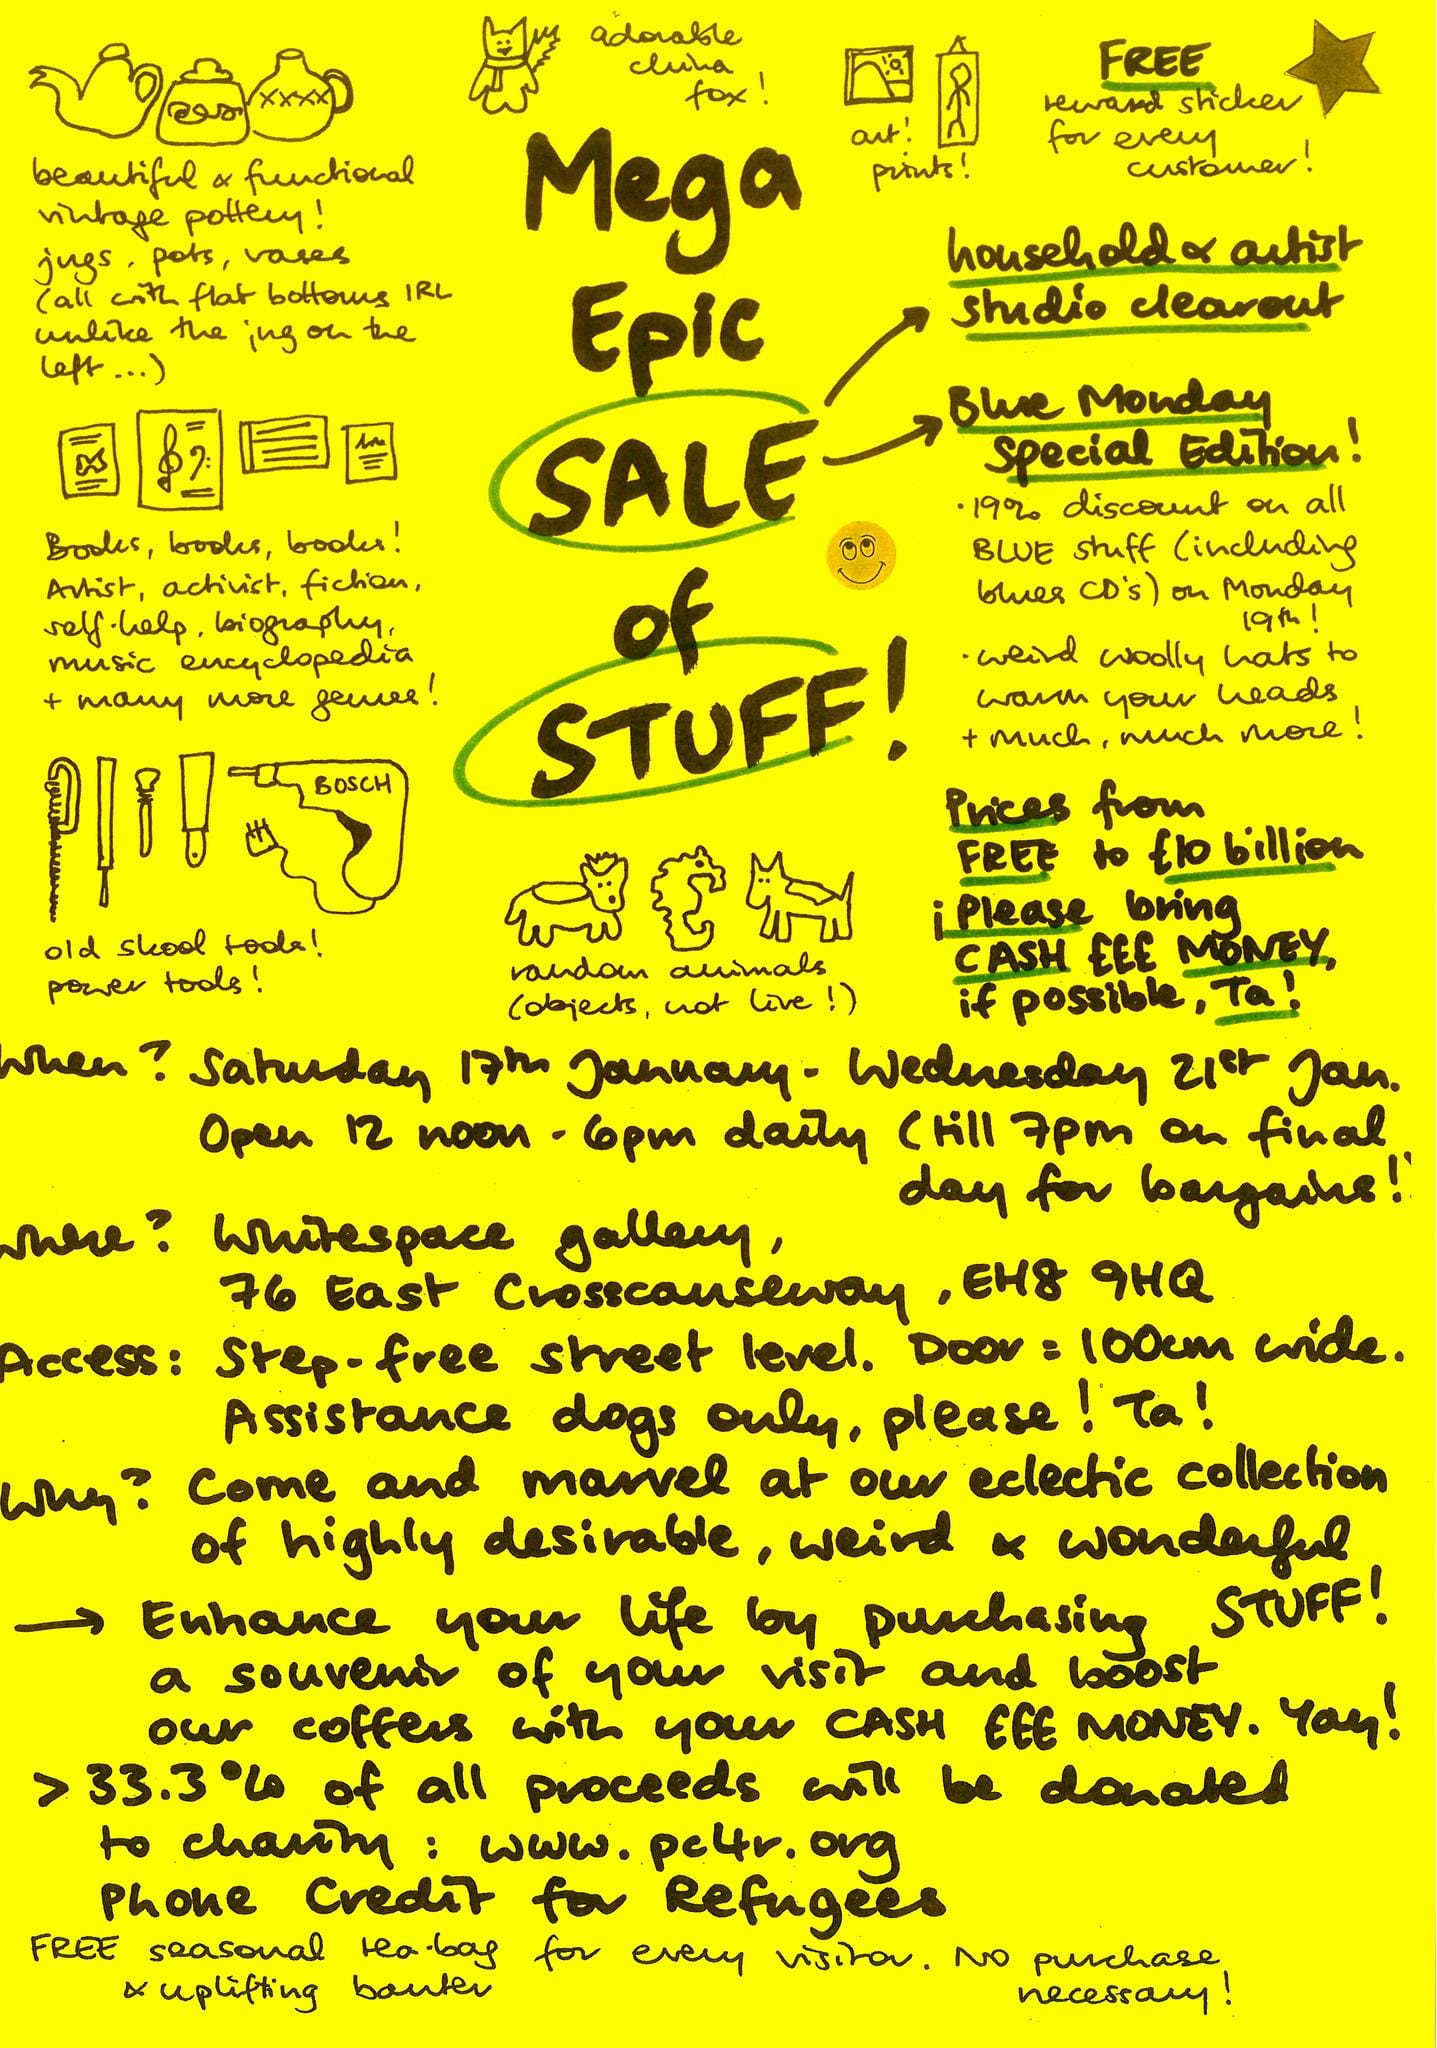 adorable
china
fox!
art!
prints!
FREE
reward sticker
for every
customer!
beautiful & functional
vintage pottery!
jugs, pots, vases
(all with flat bottoms IRL
unlike the jug on the
left...)
Mega
Epic
SALE
of
STUFF!
household & artist
studio clearout
Blue Monday
Special Edition!
· 19% discount on all
BLUE stuff (including
blues CD's) on Monday
19th!
· weird woolly hats to
warm your heads
+ much, much more!
Books, books, books!
Artist, activist, fiction,
self-help, biography,
music encyclopedia
+ many more genres!
BOSCH
old skool tools!
power tools!
random animals
(objects, not live!)
Prices from
FREE to £10 billion
¡Please bring
CASH £££ MONEY,
if possible, Ta!
When? Saturday 17th January - Wednesday 21st Jan.
Open 12 noon - 6pm daily (till 7pm on final
day for bargains!)
Where? Whitespace gallery,
76 East Crosscauseway, EH8 9HQ
Access: Step-free street level. Door = 100cm wide.
Assistance dogs only, please! Ta!
Why? Come and marvel at our eclectic collection
of highly desirable, weird & wonderful
STUFF!
→ Enhance your life by purchasing
a souvenir of your visit and boost
our coffers with your CASH £££ MONEY. Yay!
> 33.3% of all proceeds will be donated
to charity: www.pc4r.org
Phone Credit for Refugees
FREE seasonal tea-bag for every visitor. No purchase
& uplifting banter necessary!